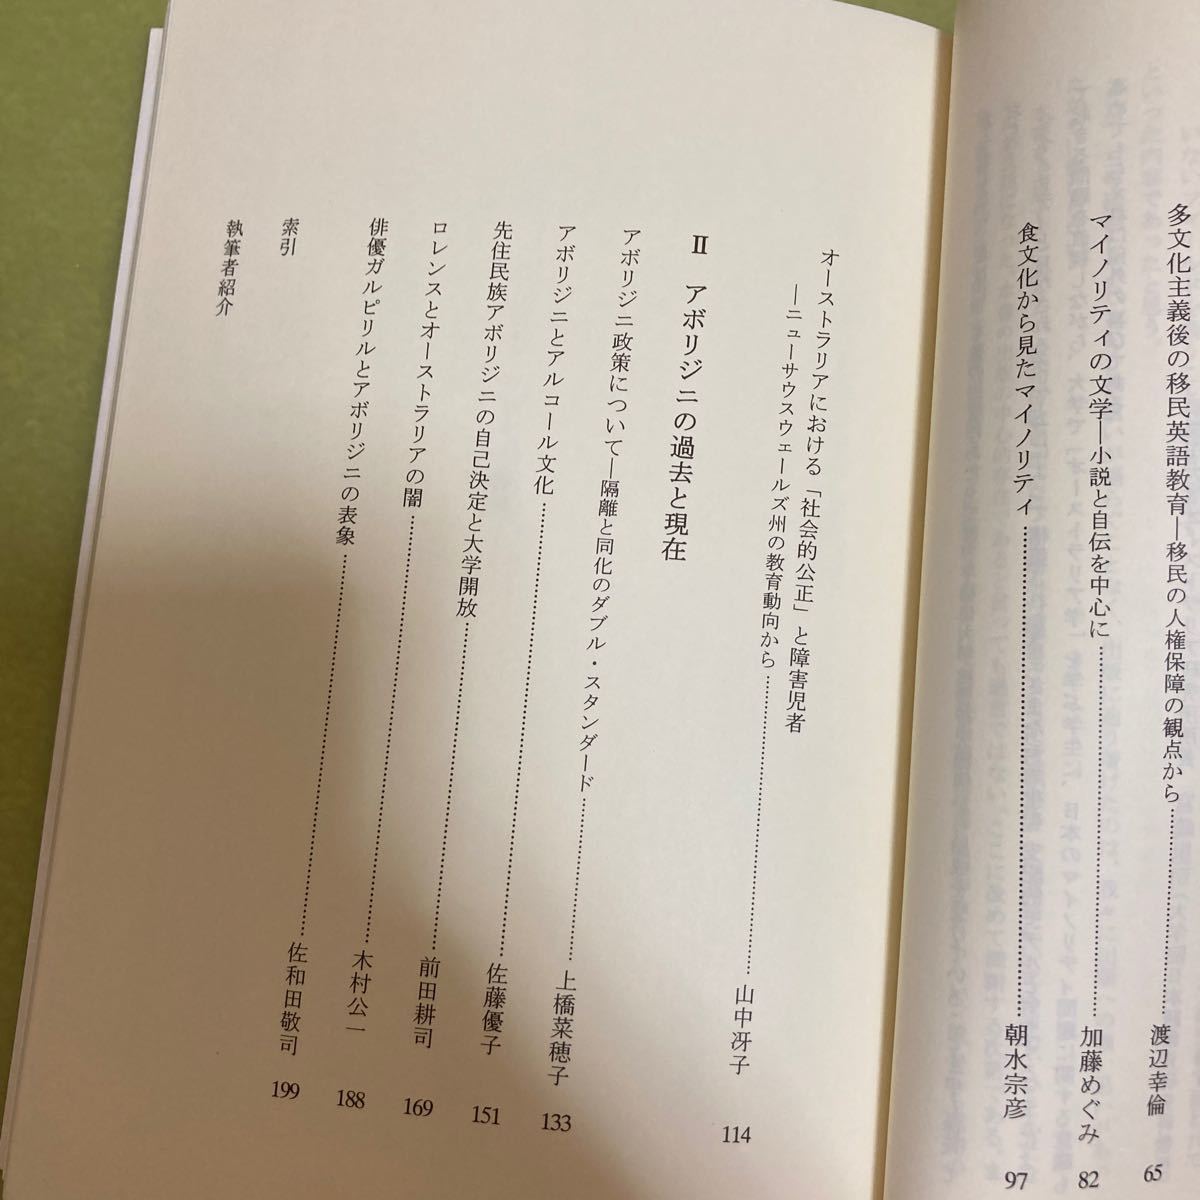 多文化主義後の移民英語教育―移民の人権保障の観点から……渡辺幸倫 65
マイノリティの文学―小説と自伝を中心に……加藤めぐみ 82
食文化から見たマイノリティ……朝水宗彦 97
オーストラリアにおける「社会的公正」と障害児者
―ニューサウスウェールズ州の教育動向から……山中冴子 114
Ⅱ アボリジニの過去と現在
アボリジニ政策について―隔離と同化のダブル・スタンダード……上橋菜穂子 133
アボリジニとアルコール文化……佐藤優子 151
先住民族アボリジニの自己決定と大学開放……前田耕司 169
ロレンスとオーストラリアの闇……木村公一 188
俳優ガルピリルとアボリジニの表象……佐和田敬司 199
索引
執筆者紹介